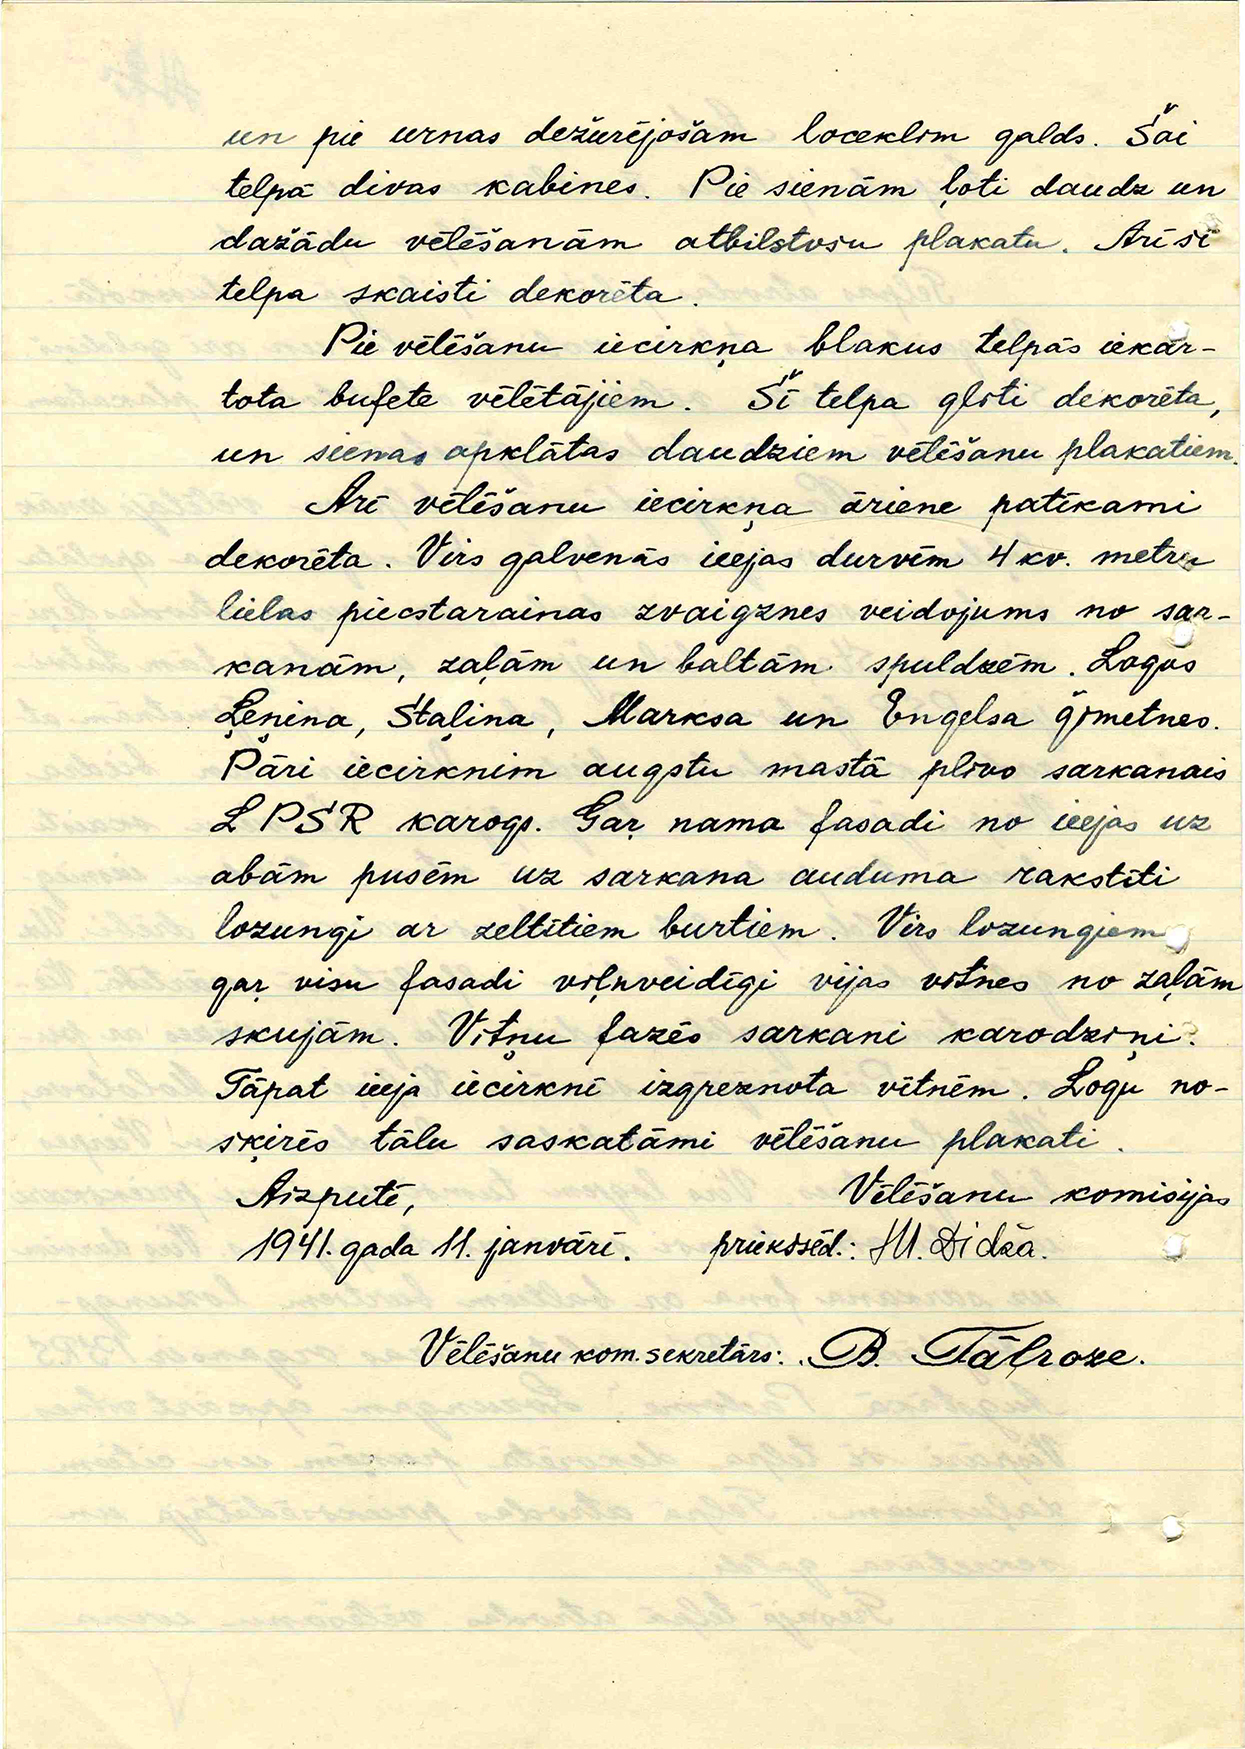 un pie urnas dežurējošam loceklim galds. Šai
telpā divas kabines. Pie sienām ļoti daudz un
dažādu vēlēšanām atbilstošu plakatu. Arī šī
telpa skaisti dekorēta.
Pie vēlēšanu iecirkņa blakus telpās iekār-
tota bufete vēlētājiem. Šī telpa glīti dekorēta,
un sienas apklātas daudziem vēlēšanu plakatiem.
Arī vēlēšanu iecirkņa āriene patīkami
dekorēta. Virs galvenās ieejas durvīm 4 kv. metru
lielas piecstarainas zvaigznes veidojums no sar-
kanām, zaļām un baltām spuldzēm. Logos
Ļeņina, Staļina, Marksa un Engelsa ģīmetnes.
Pāri iecirknim augstu mastā plīvo sarkanais
LPSR karogs. Gaŗ nama fasadi no ieejas uz
abām pusēm uz sarkana auduma rakstīti
lozungi ar zeltītiem burtiem. Virs lozungiem
gaŗ visu fasadi viļņveidīgi vijas vītnes no zaļām
skujām. Vītņu fazēs sarkani karodziņi.
Tāpat ieeja iecirknī izgreznota vītnēm. Logu no-
šķirēs tālu saskatāmi vēlēšanu plakati.
Aizputē, Vēlēšanu komisijas
1941. gada 11. janvārī. priekšsēd.: M. Didža.
Vēlēšanu kom. sekretārs: B. Tālroze.